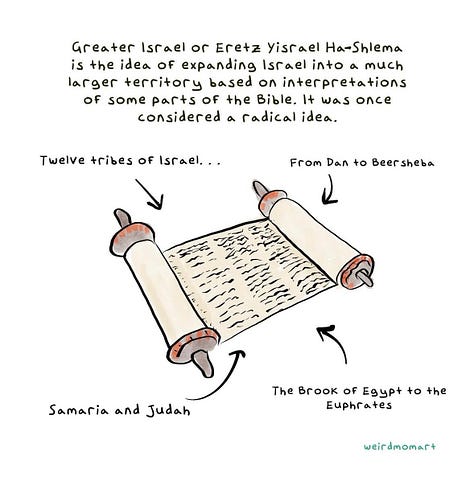 Greater Israel or Eretz Yisrael Ha-Shlema
is the idea of expanding Israel into a much
larger territory based on interpretations
of some parts of the Bible. It was once
considered a radical idea.
Twelve tribes of Israel...
From Dan to Beersheba
Samaria and Judah
The Brook of Egypt to the
Euphrates
weirdmomart